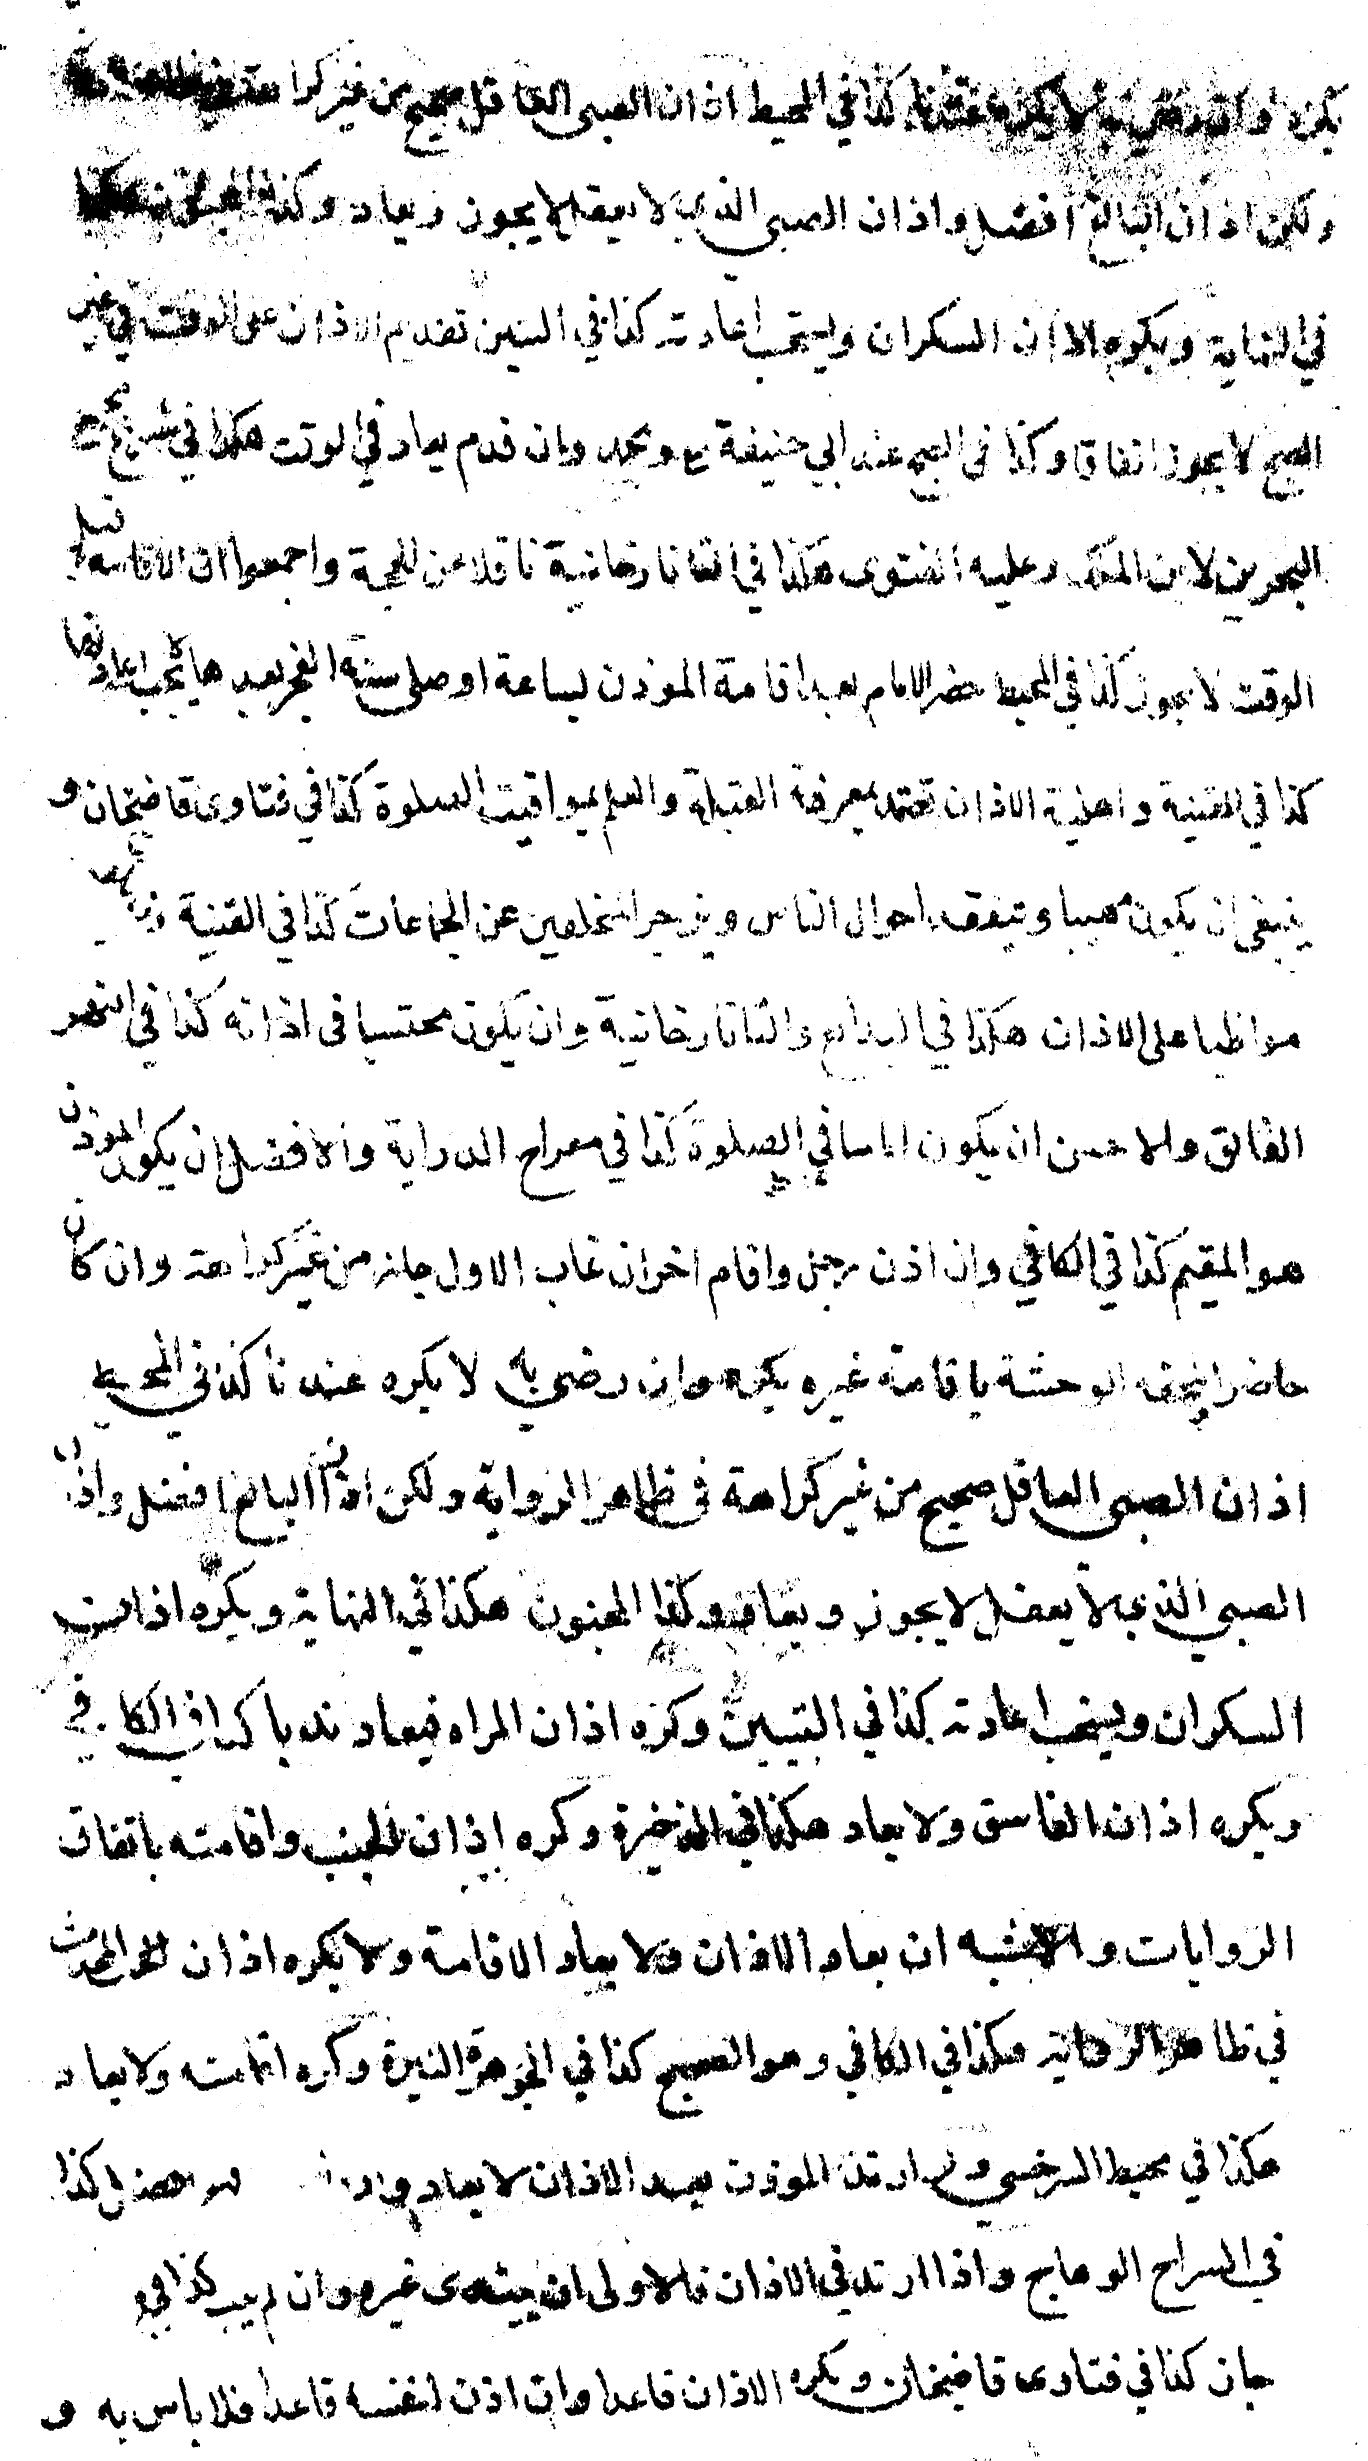 يكره وان رضي به لا يكره عندنا كذا في المحيط اذان الصبي العاقل صحيح من غير كراهة في
ولكن اذان البالغ افضل واذان الصبي الذي لا يعقل لا يجوز ويعاد وكذا المجنون هكذا
في النهاية ويكره الاذان السكران ويستحب اعادته كذا في التبيين تقديم الاذان على الوقت في غير
الصبح لا يجوز اتفاقا وكذا في الصبح عند ابي حنيفة رح ومحمد وان قدم يعاد في الوقت هكذا في شرح مجمع
البحرين لابن الملك وعليه الفتوى هكذا في التاتارخانية ناقلا عن الحجة واجمعوا ان الاقامة قبل
الوقت لا يجوز كذا في المحيط حضر الامام بعد اقامة الموذن بساعة او صلى سنة الفجر بعدها لا يجب اعادتها
كذا في القنية واهلية الاذان تعتمد بمعرفة القبلة والعلم بمواقيت الصلوة كذا في فتاوى قاضيخان و
ينبغي ان يكون مهيبا ويتفقد احوال الناس ويزجر المتخلفين عن الجماعات كذا في القنية
مواظبا على الاذان هكذا في البدائع والتاتارخانية وان يكون محتسبا في اذانه كذا في النهر
الفائق والاحسن ان يكون اماما في الصلوة كذا في معراج الدراية والافضل ان يكون الموذن
هو المقيم كذا في الكافي وان اذن رجل واقام اخر ان غاب الاول جاز من غير كراهة وان كان
حاضرا يلحقه الوحشة باقامة غيره يكره وان رضي به لا يكره عندنا كذا في المحيط
اذان الصبي العاقل صحيح من غير كراهة في ظاهر الرواية ولكن اذان البالغ افضل واذان
الصبي الذي لا يعقل لا يجوز ويعاد وكذا المجنون هكذا في النهاية ويكره اذان
السكران ويستحب اعادته كذا في التبيين وكره اذان المراه فيعاد ندبا كذا في الكافي
ويكره اذان الفاسق ولا يعاد هكذا في الذخيرة وكره اذان الجنب واقامته باتفاق
الروايات والاشبه ان يعاد الاذان ولا يعاد الاقامة ولا يكره اذان المحدث
في ظاهر الرواية هكذا في الكافي وهو الصحيح كذا في الجوهرة النيرة وكره اقامته ولا يعاد
هكذا في محيط السرخسي ولو ارتد الموذن بعد الاذان لا يعاد وان افضل كذا
في السراج الوهاج واذا ارتد في الاذان فالاولى ان يبتدى غيره وان لم
جاز كذا في فتاوى قاضيخان ويكره الاذان قاعدا وان اذن لنفسه قاعدا فلا باس به و